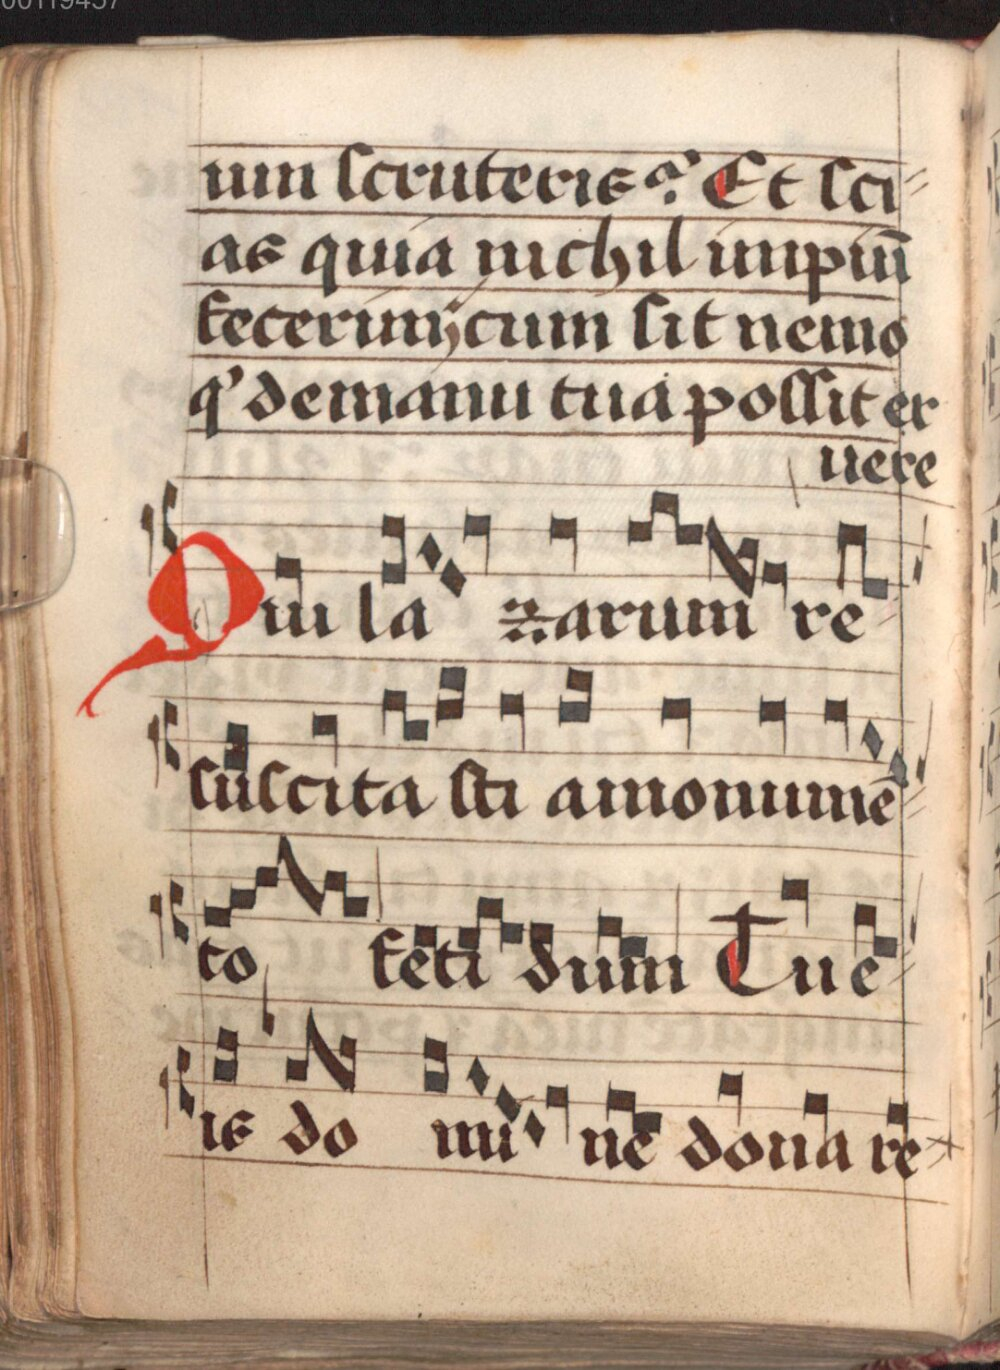 um scruteris? Et sci
as quia nichil impiū
fecerim, cum sit nemo
q' de manu tua possit er
uere
Qui la zarum re
suscita sti a monumē
to feti dum Tu e
is do mi ne dona re